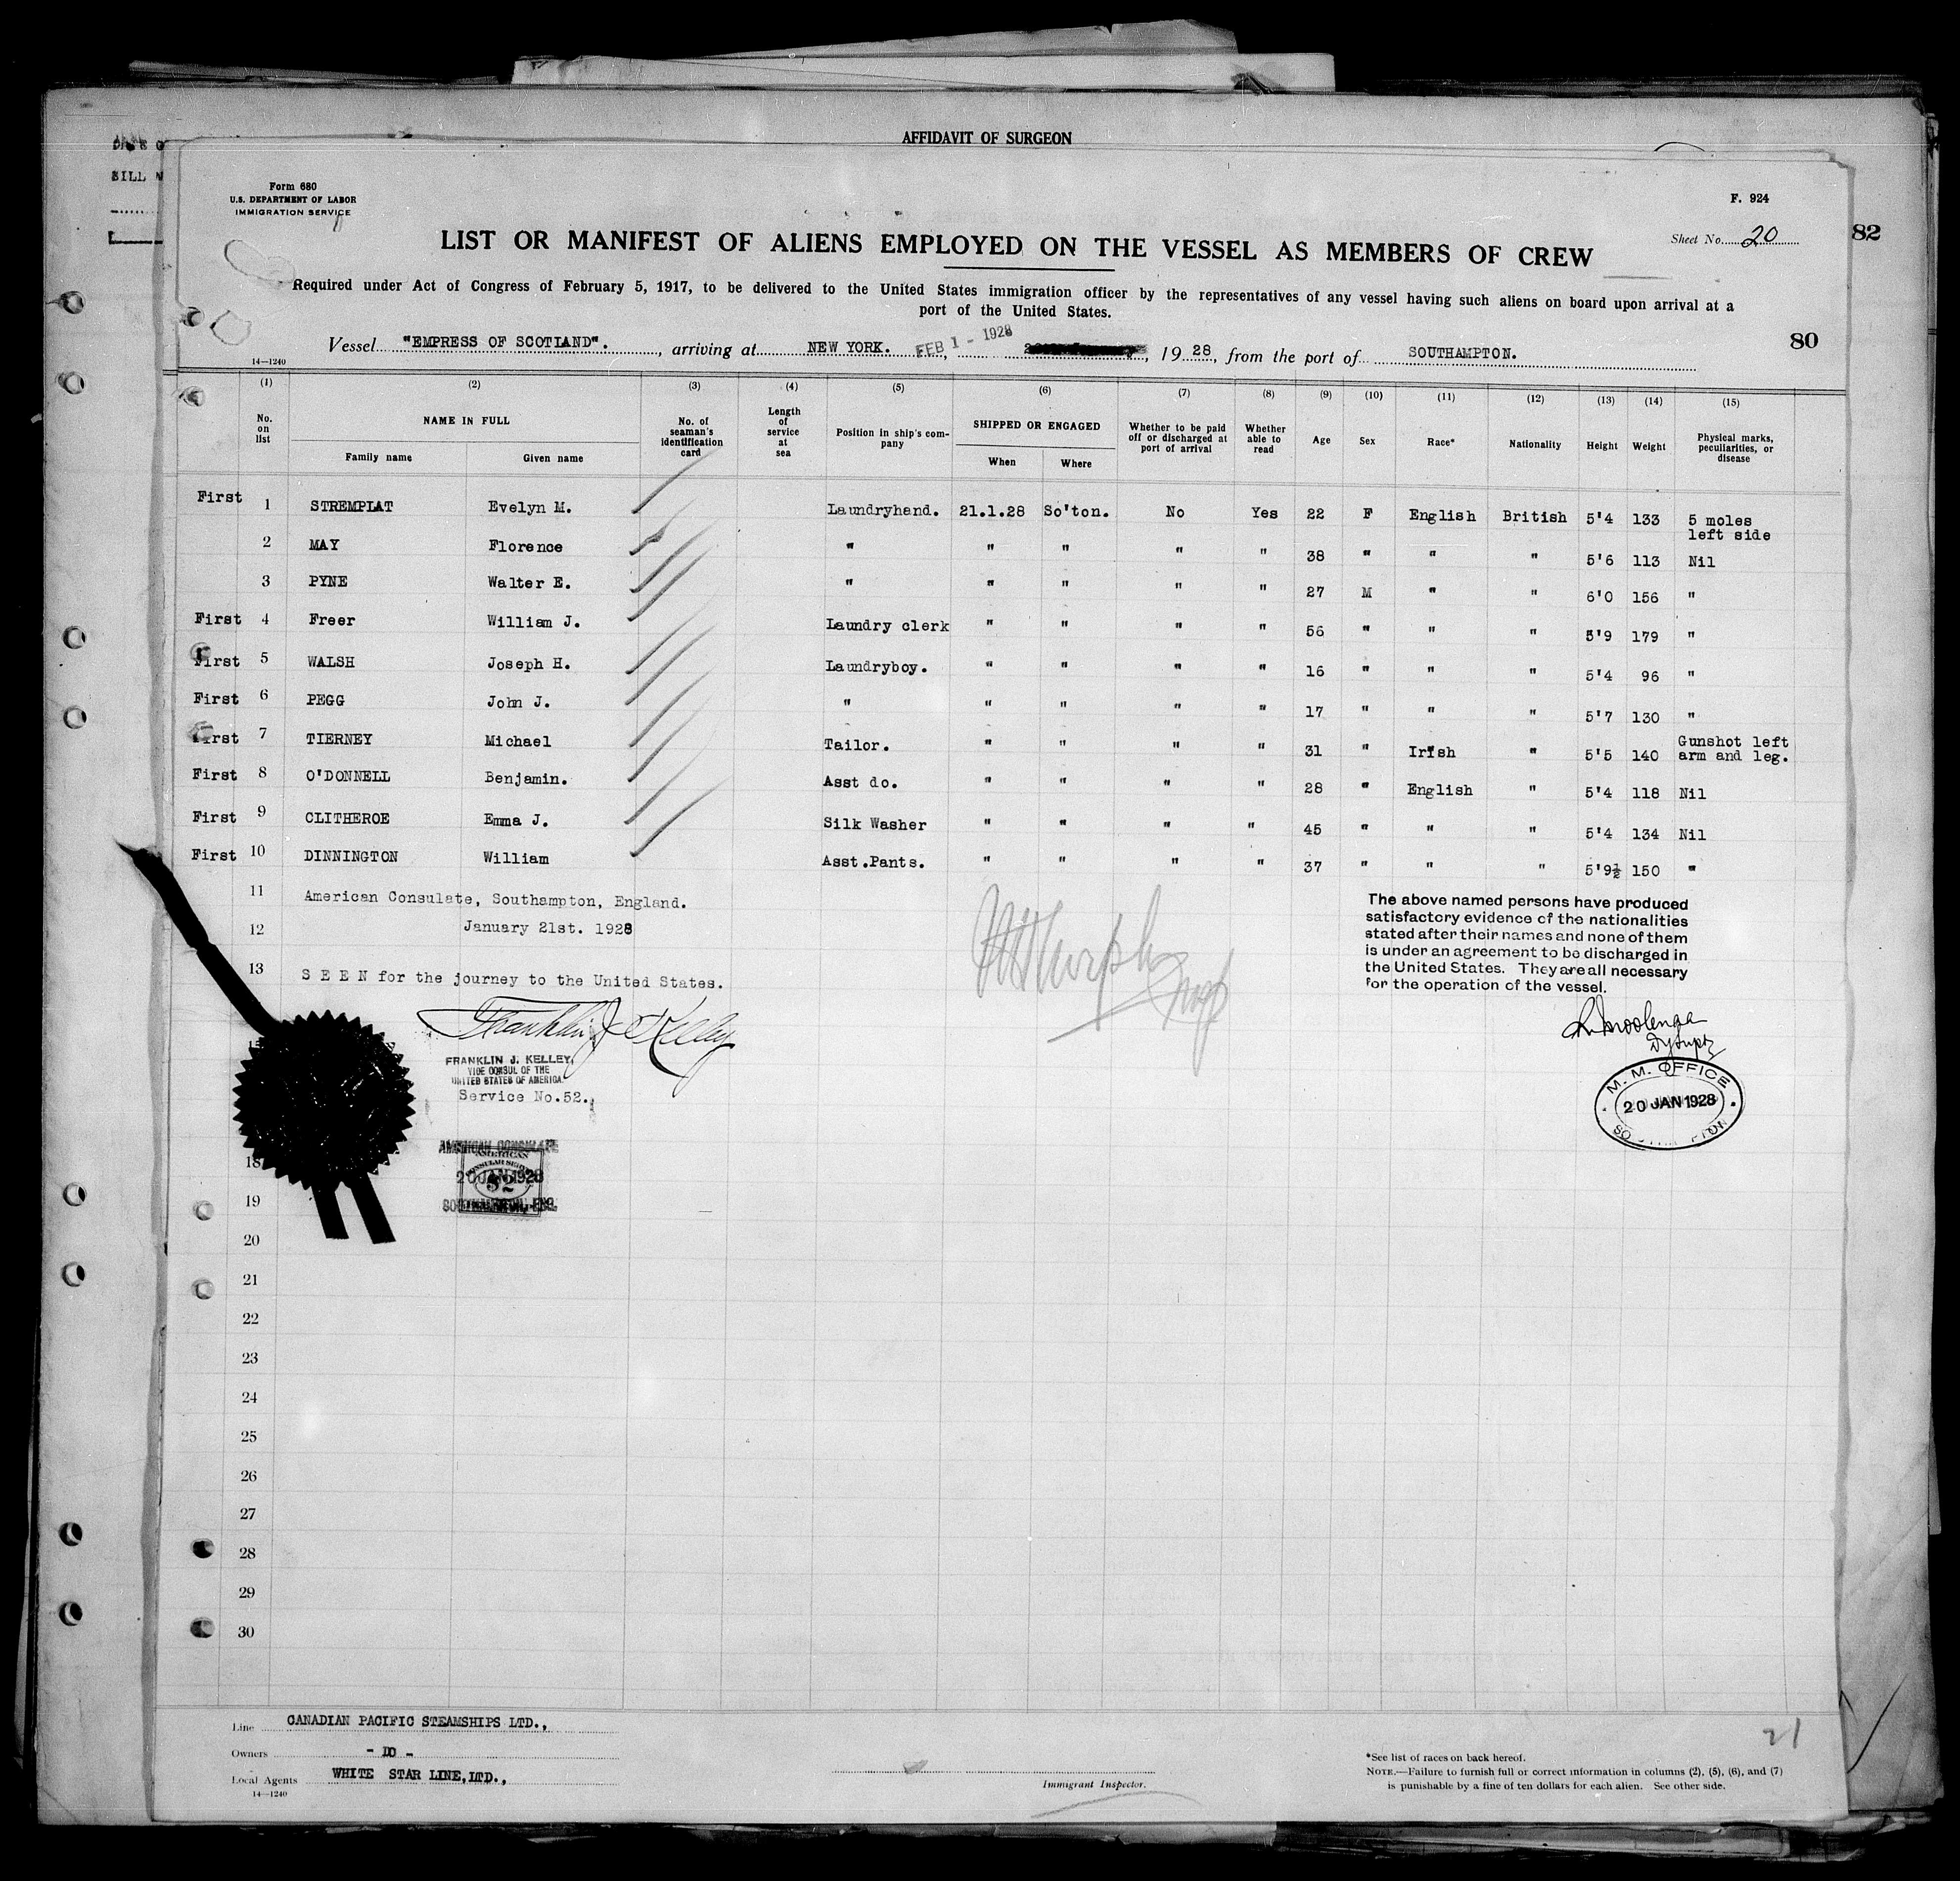 AFFIDAVIT OF SURGEON
Form 680
U.S. DEPARTMENT OF LABOR
IMMIGRATION SERVICE
F. 924
LIST OR MANIFEST OF ALIENS EMPLOYED ON THE VESSEL AS MEMBERS OF CREW
Sheet No. 20
82
Required under Act of Congress of February 5, 1917, to be delivered to the United States immigration officer by the representatives of any vessel having such aliens on board upon arrival at a
port of the United States.
80
Vessel "EMPRESS OF SCOTLAND"., arriving at NEW YORK. FEB 1 - 1928, 1928, from the port of SOUTHAMPTON.
14—1240
(1) (2) (3) (4) (5) (6) (7) (8) (9) (10) (11) (12) (13) (14) (15)
No. on list NAME IN FULL Family name Given name No. of seaman's identification card Length of service at sea Position in ship's company SHIPPED OR ENGAGED When Where Whether to be paid off or discharged at port of arrival Whether able to read Age Sex Race* Nationality Height Weight Physical marks, peculiarities, or disease
First 1 STREMPLAT Evelyn M. Laundryhand. 21.1.28 So'ton. No Yes 22 F English British 5'4 133 5 moles left side
2 MAY Florence " " " " " 38 " " " 5'6 113 Nil
3 PYNE Walter E. " " " " " 27 M " " 6'0 156 "
First 4 Freer William J. Laundry clerk " " " " 56 " " " 5'9 179 "
First 5 WALSH Joseph H. Laundryboy. " " " " 16 " " " 5'4 96 "
First 6 PEGG John J. " " " " " 17 " " " 5'7 130 "
First 7 TIERNEY Michael Tailor. " " " " 31 " Irish " 5'5 140 Gunshot left arm and leg.
First 8 O'DONNELL Benjamin. Asst do. " " " " 28 " English " 5'4 118 Nil
First 9 CLITHEROE Emma J. Silk Washer " " " " 45 " " " 5'4 134 Nil
First 10 DINNINGTON William Asst.Pants. " " " " 37 " " " 5'9½ 150 "
11 American Consulate, Southampton, England.
12 January 21st. 1928
13 S E E N for the journey to the United States.
The above named persons have produced
satisfactory evidence of the nationalities
stated after their names and none of them
is under an agreement to be discharged in
the United States. They are all necessary
for the operation of the vessel.
Franklin J Kelley
FRANKLIN J. KELLEY,
VICE CONSUL OF THE
UNITED STATES OF AMERICA.
Service No.52.
M. M. OFFICE
20 JAN 1928
AMERICAN CONSULATE
AMERICAN
CONSULAR SERVICE
20 JAN 1928
52
SOUTHAMPTON, ENG.
18
19
20
21
22
23
24
25
26
27
28
29
30
Line CANADIAN PACIFIC STEAMSHIPS LTD.,
Owners - DO -
Local Agents WHITE STAR LINE, LTD.,
14—1240
Immigrant Inspector.
21
*See list of races on back hereof.
NOTE.—Failure to furnish full or correct information in columns (2), (5), (6), and (7)
is punishable by a fine of ten dollars for each alien. See other side.